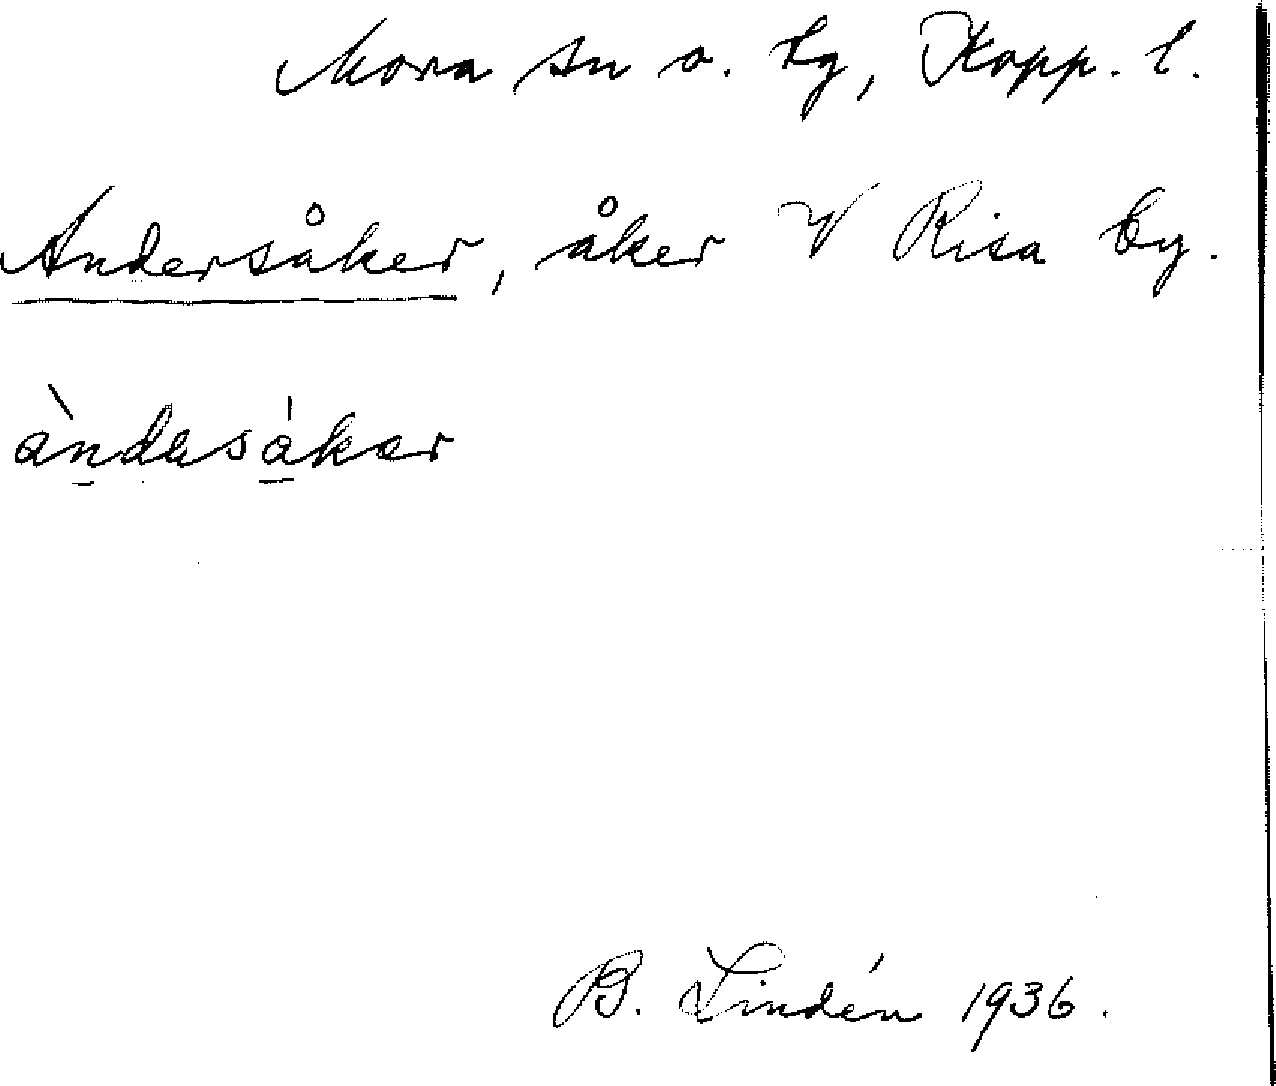 Mora sn o. tg, Kopp. l.
Andersåker, åker V Risa by.
àndasákar
B. Lindén 1936.